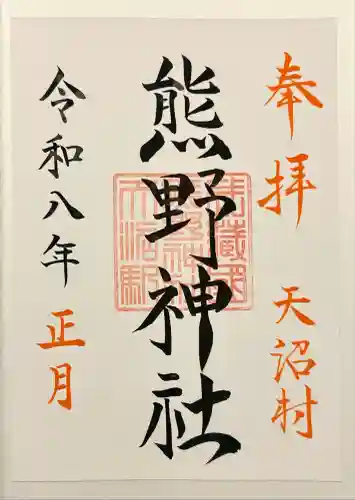 奉拝 天沼村
熊野神社
令和八年 正月